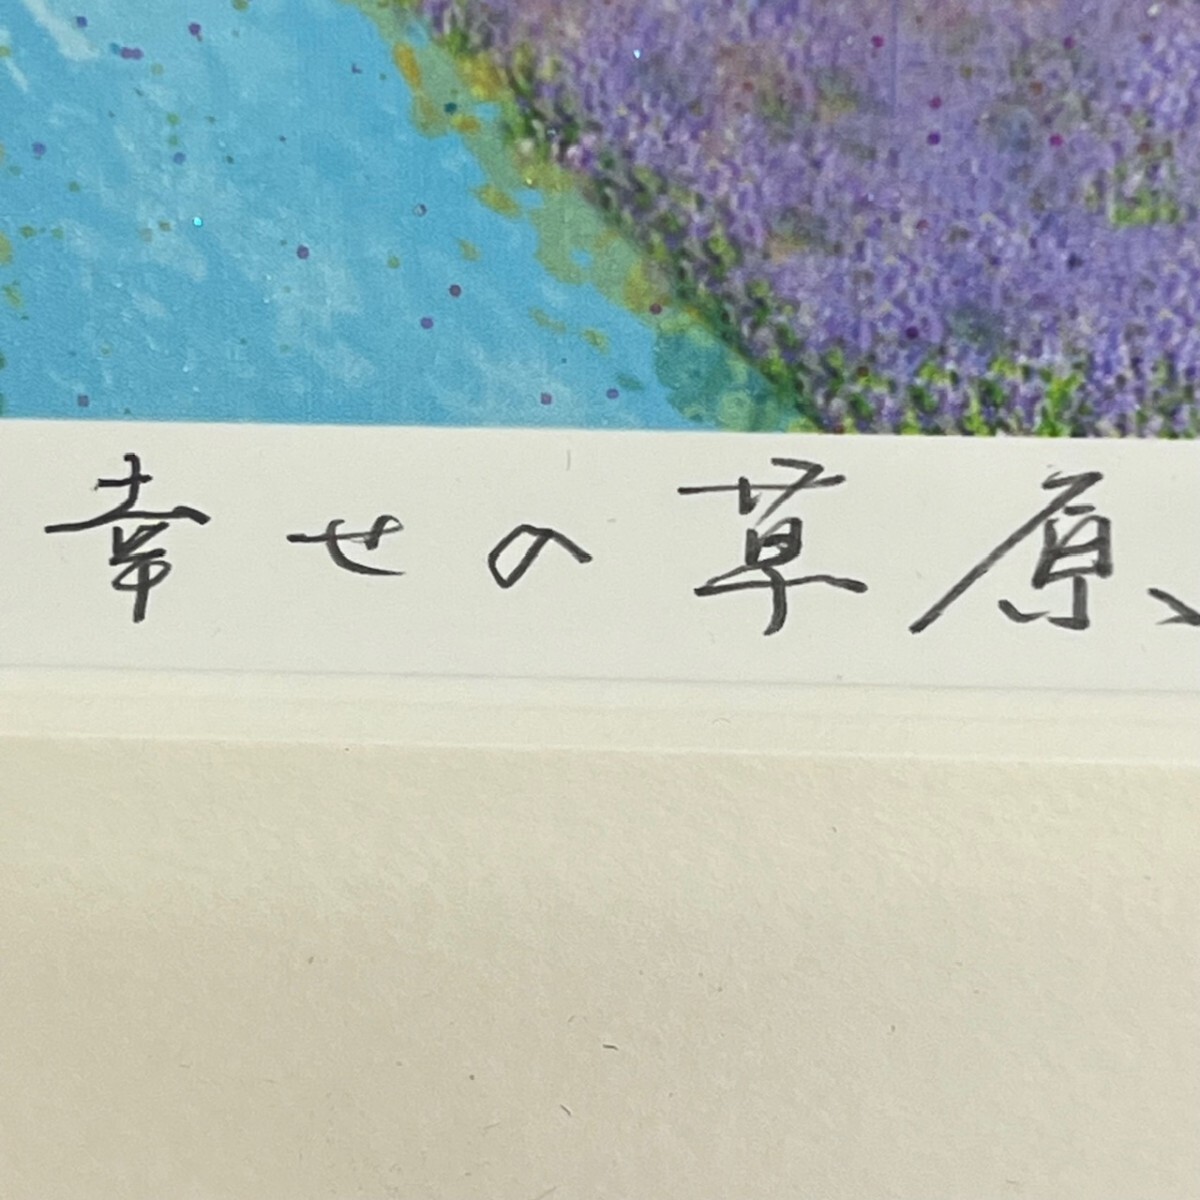 幸せの草原、